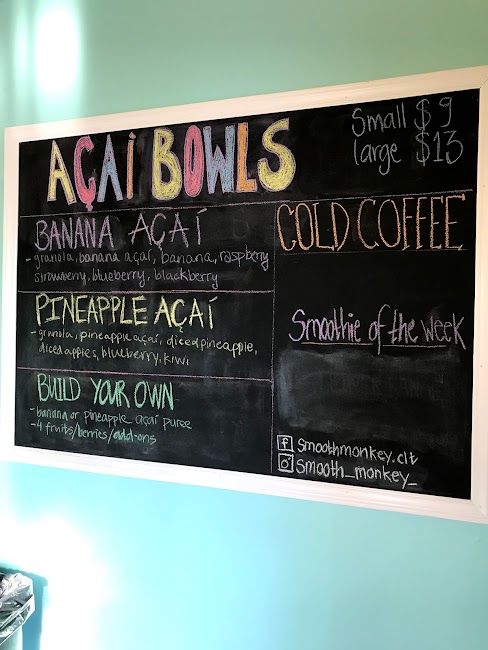 AÇAÍ BOWLS
Small $9
large $13
BANANA AÇAÍ
- granola, banana açaí, banana, raspberry
strawberry, blueberry, blackberry
PINEAPPLE AÇAÍ
- granola, pineapple açaí, diced pineapple,
diced apples, blueberry, kiwi
BUILD YOUR OWN
- banana or pineapple açaí puree
- 4 fruits/berries/add-ons
COLD COFFEE
Smoothie of the week
f Smoothmonkey.clt
Smooth_monkey_